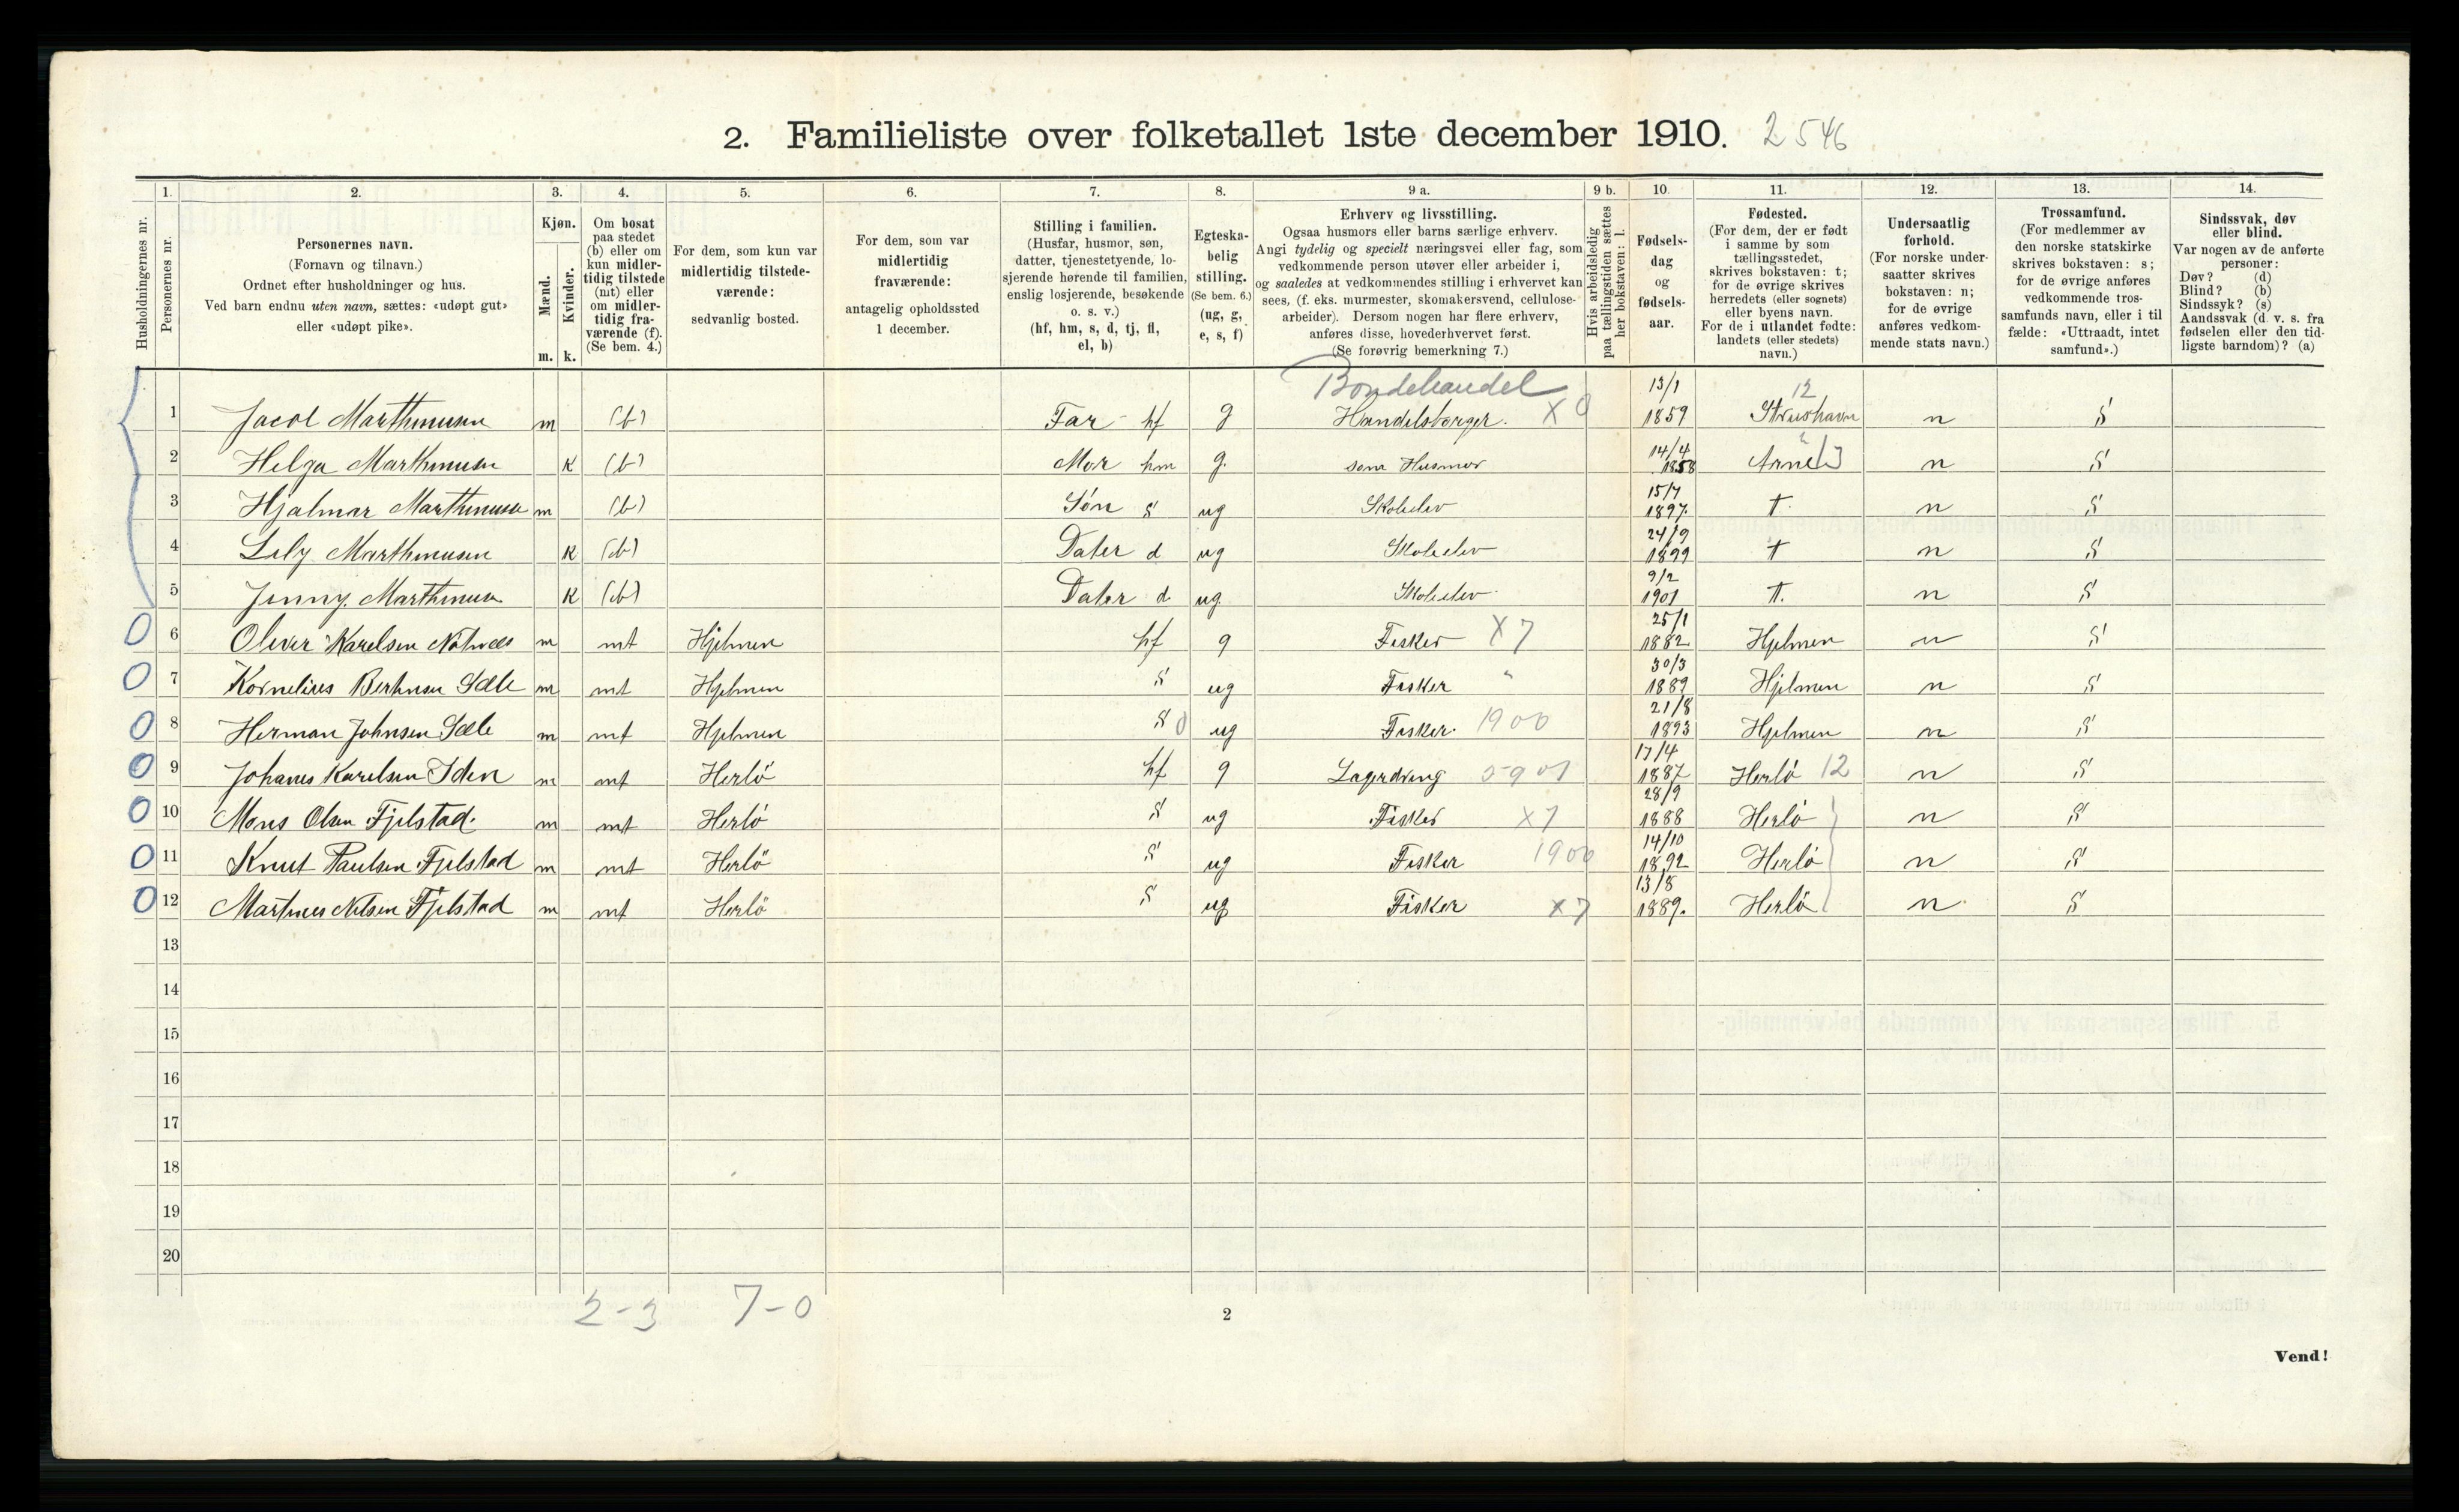 2. Familieliste over folketallet 1ste december 1910. 2546
Husholdningernes nr.
1. Personernes nr.
2. Personernes navn. (Fornavn og tilnavn.) Ordnet efter husholdninger og hus. Ved barn endnu uten navn, sættes: «udøpt gut» eller «udøpt pike».
3. Kjøn. Mænd. m. Kvinder. k.
4. Om bosat paa stedet (b) eller om kun midlertidig tilstede (mt) eller om midlertidig fraværende (f). (Se bem. 4.)
5. For dem, som kun var midlertidig tilstedeværende: sedvanlig bosted.
6. For dem, som var midlertidig fraværende: antagelig opholdssted 1 december.
7. Stilling i familien. (Husfar, husmor, søn, datter, tjenestetyende, losjerende hørende til familien, enslig losjerende, besøkende o. s. v.) (hf, hm, s, d, tj, fl, el, b)
8. Egteskabelig stilling. (Se bem. 6.) (ug, g, e, s, f)
9 a. Erhverv og livsstilling. Ogsaa husmors eller barns særlige erhverv. Angi tydelig og specielt næringsvei eller fag, som vedkommende person utøver eller arbeider i, og saaledes at vedkommendes stilling i erhvervet kan sees, (f. eks. murmester, skomakersvend, cellulosearbeider). Dersom nogen har flere erhverv, anføres disse, hovederhvervet først. (Se forøvrig bemerkning 7.)
9 b. Hvis arbeidsledig paa tællingstiden sættes her bokstaven: l.
10. Fødselsdag og fødselsaar.
11. Fødested. (For dem, der er født i samme by som tællingsstedet, skrives bokstaven: t; for de øvrige skrives herredets (eller sognets) eller byens navn. For de i utlandet fødte: landets (eller stedets) navn.)
12. Undersaatlig forhold. (For norske undersaatter skrives bokstaven: n; for de øvrige anføres vedkommende stats navn.)
13. Trossamfund. (For medlemmer av den norske statskirke skrives bokstaven: s; for de øvrige anføres vedkommende trossamfunds navn, eller i tilfælde: «Uttraadt, intet samfund».)
14. Sindssvak, døv eller blind. Var nogen av de anførte personer: Døv? (d) Blind? (b) Sindssyk? (s) Aandssvak (d. v. s. fra fødselen eller den tidligste barndom)? (a)
Bondehandel
1 Jacob Marthinusen m (b) Far hf g Handelsborger. X 0 13/1 1859 Strushavn 12 n S
2 Helga Marthinusen k (b) Mor hm g. som Husmor 14/4 1858 Arne 13 n S
3 Hjalmar Marthinusen m (b) Søn s ug Skoleelev 15/7 1897. t n S
4 Lily Marthinusen k (b) Dater d ug Skoleelev 24/9 1899 t n S
5 Jenny. Marthinusen k (b) Dater d. ug. Skoleelev 9/2 1901 t. n S
0 6 Oliver Karelsen m mt Hjelmen hf g Fisker X7 25/1 1882 Hjelmen n S
0 7 Kornelius Berntsen Sæle m mt Hjelmen S ug Fisker " 30/3 1889 Hjelmen n S
0 8 Herman Johnsen Sæle m mt Hjelmen S 0 ug Fisker. 1900 21/8 1893 Hjelmen n S
0 9 Johanes Karelsen Iden m mt Herlö hf g Lagerdreng 5901 17/4 1887 Herlö 12 n S
0 10 Mons Olsen Fjelstad. m mt Herlö S ug Fisker X7 28/9 1888 Herlö n S
0 11 Knut Paulsen Fjelstad m mt Herlö S ug Fisker 1900 14/10 1892 Herlö n S
0 12 Martines Nilsen Fjelstad m mt Herlö S ug Fisker X7 13/8 1889. Herlö n S
13
14
15
16
17
18
19
20
2-3 7-0
2
Vend!